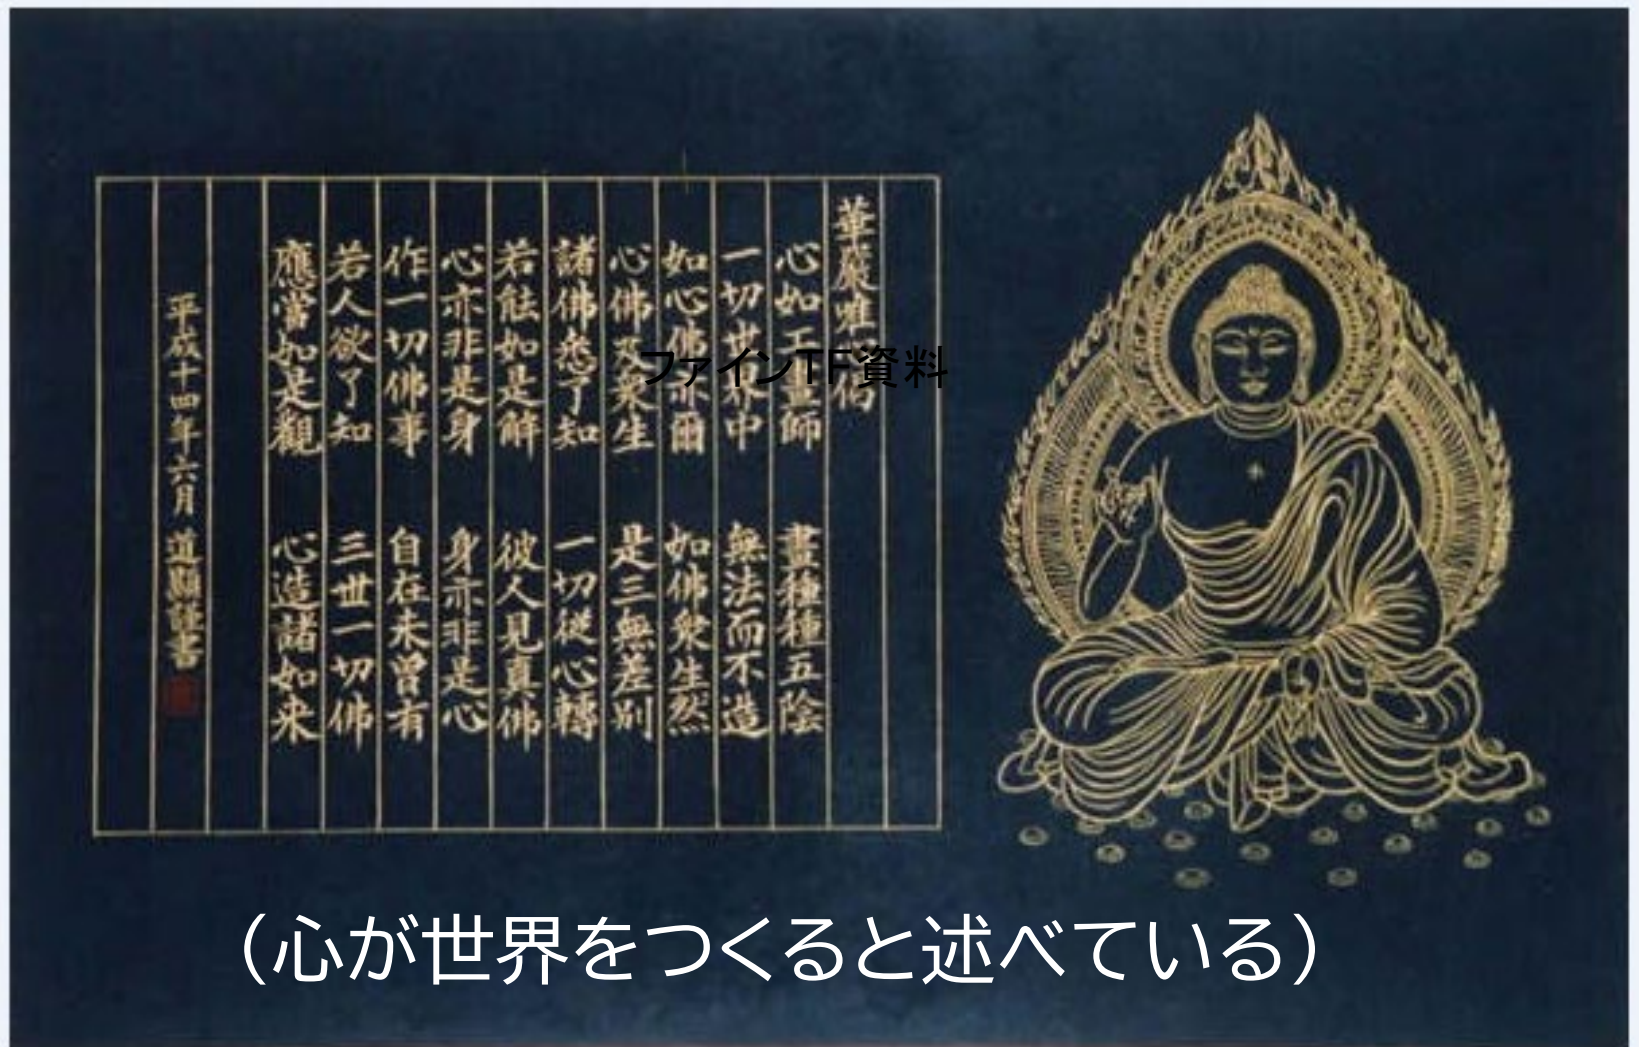 華厳唯心偈
心如工畫師 畫種種五陰
一切世界中 無法而不造
如心佛亦爾 如佛衆生然
心佛及衆生 是三無差別
諸佛悉了知 一切從心轉
若能如是解 彼人見真佛
心亦非是身 身亦非是心
作一切佛事 自在未曾有
若人欲了知 三世一切佛
應當如是觀 心造諸如来
平成十四年六月 道顯謹書
ファインTF資料
（心が世界をつくると述べている）